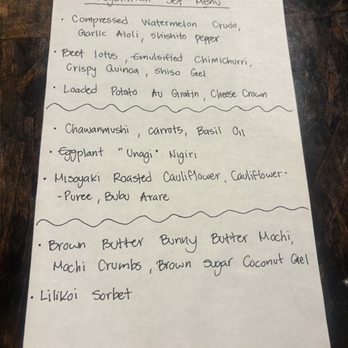 Vegetarian Set Menu
• Compressed Watermelon Crudo,
Garlic Aioli, Shishito Pepper
• Beet lotus, Emulsified Chimichurri,
Crispy Quinoa, Shiso Gel
• Loaded Potato Au Gratin, Cheese Crown
• Chawanmushi, Carrots, Basil Oil
• Eggplant "Unagi" Nigiri
• Misoyaki Roasted Cauliflower, Cauliflower-
-Puree, Bubu Arare
• Brown Butter Bunny Butter Mochi,
Mochi Crumbs, Brown Sugar Coconut Gel
• Lilikoi Sorbet